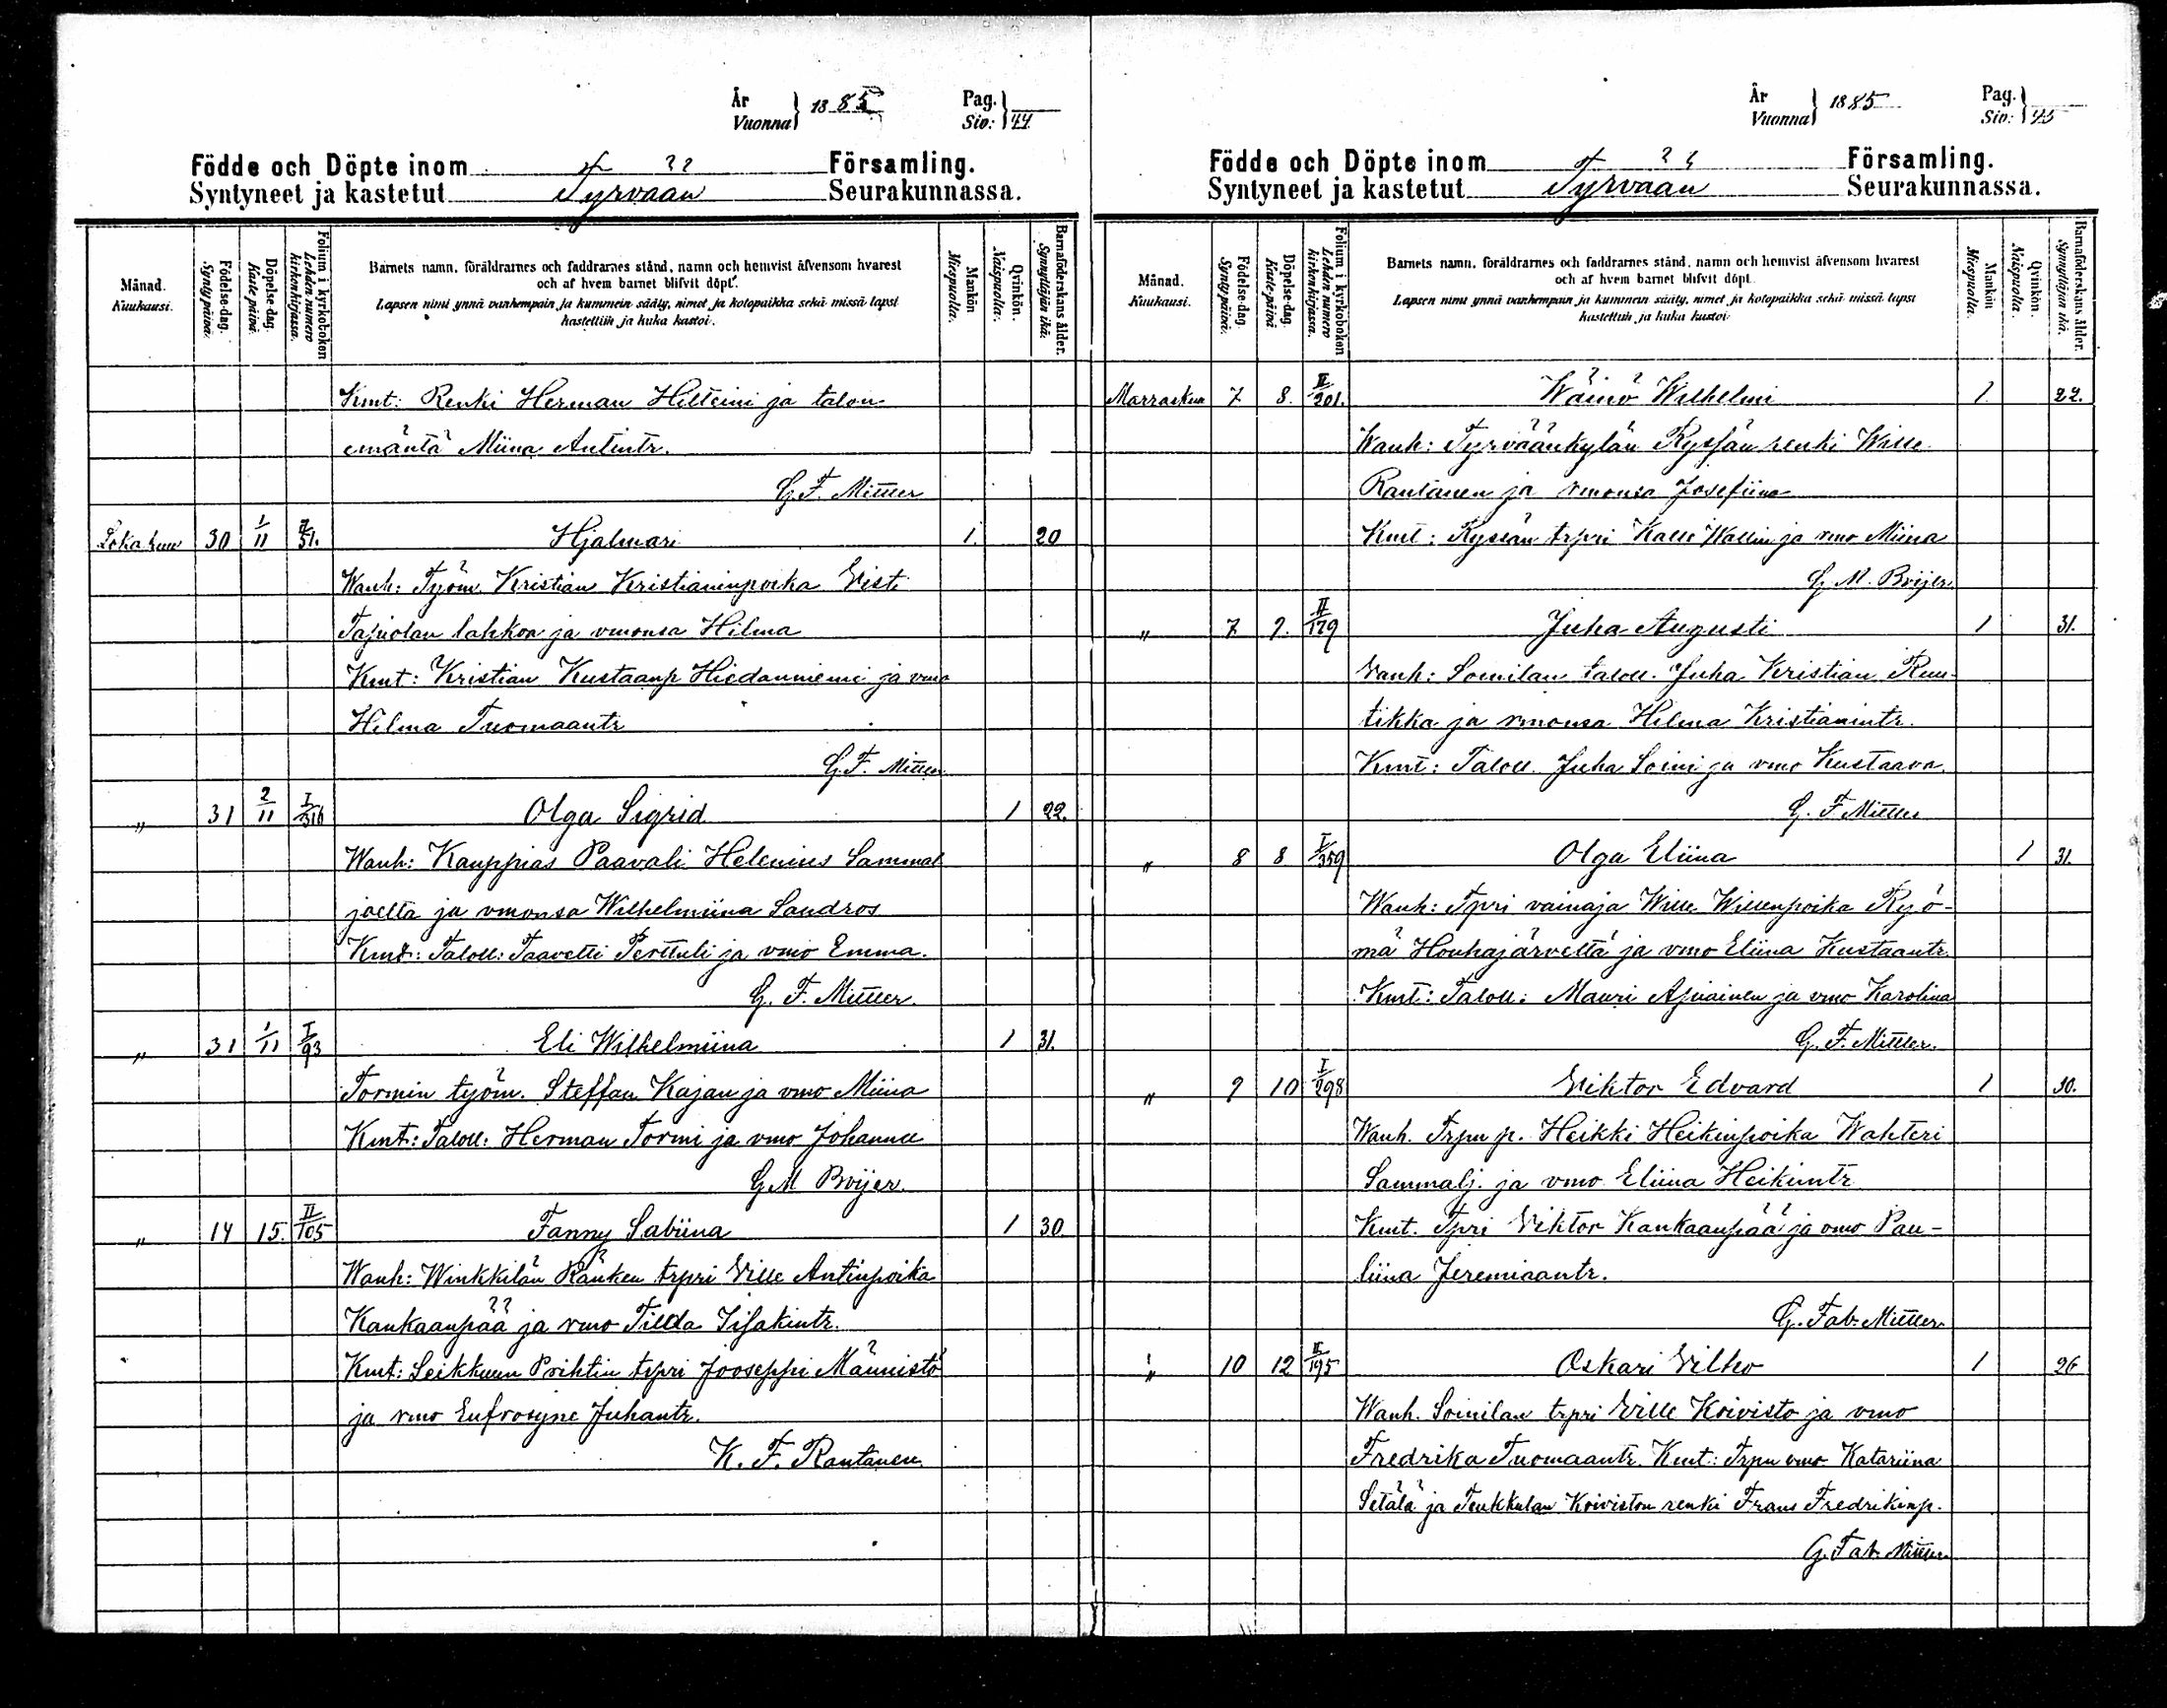 År
Vuonna } 1885
Pag.
Siv: } 44
Födde och Döpte inom Församling.
Syntyneet ja kastetut Tyrvään Seurakunnassa.
Månad.
Kuukausi.
Födelse-dag.
Syntypäivä.
Döpelse-dag.
Kaste-päivä.
Folium i kyrkoboken
Lehden numero kirkonkirjassa.
Barnets namn, föräldrarnes och faddrarnes stånd, namn och hemvist äfvensom hvarest
och af hvem barnet blifvit döpt.
Lapsen nimi ynnä vanhempain ja kummein sääty, nimet ja kotopaikka sekä missä lapsi
kastettiin ja kuka kastoi.
Mankön
Miespuolia.
Qvinkön.
Naispuolia.
Barnaföderskans ålder.
Synnyttäjän ikä.
Kmt: Renki Herman Hilteini ja talon
emäntä Miina Antintr.
G. F. Mittler
Lokakuu 30 1/11 I/31. Hjalmari 1. 20
Wanh: Työm. Kristian Kristianinpoika Visti
Tapiolan lahkoa ja vmonsa Hilma
Kmt: Kristian Kustaanp Hiedanniemi ja vmo
Helma Tuomaantr
G. F. Mittler
" 31 2/11 I/316 Olga Sigrid 1 22.
Wanh: Kauppias Paavali Helenius Sammal
joelta ja vmonsa Wilhelmiina Sandros
Kmt: Taloll: Taavetti Perttuli ja vmo Emma.
G. F. Mittler.
" 31 1/11 I/93 Eli Wilhelmiina 1 31.
Tormin työm. Steffan Kajan ja vmo Miina
Kmt: Taloll: Herman Tormi ja vmo Johanna
G M Brijer.
" 14 15. II/105 Fanny Sabiina 1 30.
Wanh: Winkkilän Ränken trpri Ville Antinpoika
Kankaanpää ja vmo Tilda Iisakintr.
Kmt: Leikkuun Prihtin trpri Jooseppi Männistö
ja vmo Eufrosyne Juhantr.
K. F. Rantanen.
År
Vuonna } 1885
Pag.
Siv: } 45
Födde och Döpte inom Församling.
Syntyneet ja kastetut Tyrvään Seurakunnassa.
Månad.
Kuukausi.
Födelse-dag
Syntypäivä.
Döpelse-dag.
Kaste-päivä
Folium i kyrkoboken
Lehden numero kirkonkirjassa.
Barnets namn, föräldrarnes och faddrarnes stånd, namn och hemvist äfvensom hvarest
och af hvem barnet blifvit döpt
Lapsen nimi ynnä vanhempain ja kummein sääty, nimet ja kotopaikka sekä missä lapsi
kastettiin ja kuka kastoi
Mankön
Miespuolia.
Qvinkön.
Naispuolia.
Barnaföderskans ålder.
Synnyttäjän ikä.
Marraskuu 7 8. II/201. Wäinö Wilhelmi 1 22.
Wanh: Tyrväänkylän Ryssän renki Wille
Rantanen ja vmonsa Josefiina
Kmt: Ryssän trpri Kalle Wallin ja vmo Miina
G. M. Brijer.
" 7 9. II/179 Juha Augusti 1 31.
Vanh: Soinilan taloll. Juha Kristian Ruu-
tikka ja vmonsa Hilma Kristianintr.
Kmt: Taloll. Juha Soini ja vmo Kustaava.
G. F. Mittler
" 8 8 I/359 Olga Eliina 1 31.
Wanh: Tpri vainaja Wille Willenpoika Ryö-
mä Houhajärveltä ja vmo Eliina Kustaantr.
Kmt: Taloll: Mauri Apiainen ja vmo Karolina
G. F. Mittler.
" 9 10 I/298 Viktor Edvard 1 30.
Wanh. Trpn p. Heikki Heikinpoika Wahteri
Sammalj. ja vmo Eliina Heikintr.
Kmt. Tpri Viktor Kankaanpää ja vmo Pau-
liina Jeremiaantr.
G. Fab. Mittler
" 10 12 II/195 Oskari Vilho 1 26
Wanh. Soinilan trpri Ville Koivisto ja vmo
Fredrika Tuomaantr. Kmt: Trpn vmo Katariina
Setälä ja Teukkulan Koiviston renki Frans Fredrikinp.
G. Fab. Mittler